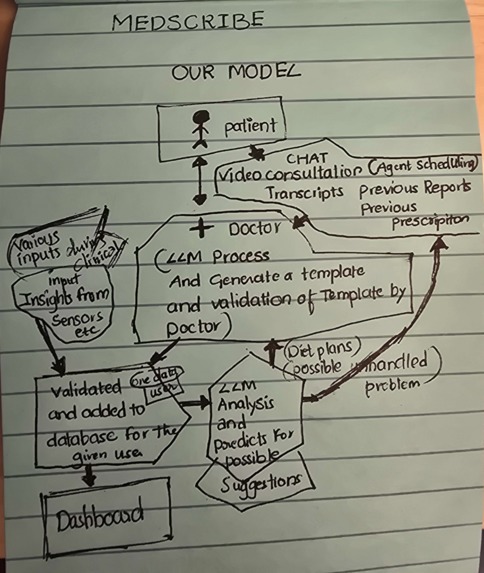 MEDSCRIBE
OUR MODEL
patient
CHAT
Video consultation (Agent scheduling)
Transcripts Previous Reports
Previous
Prescripiton
+ Doctor
(LLM Process
And Generate a template
and validation of Template by
Doctor)
Various
inputs during
clinical
input
Insights from
Sensors
etc
(Diet plans)
(possible unhandled)
problem
Validated
one data
user
and added to
database for the
given user
LLM
Analysis
and
predicts for
possible
Suggestions
Dashboard